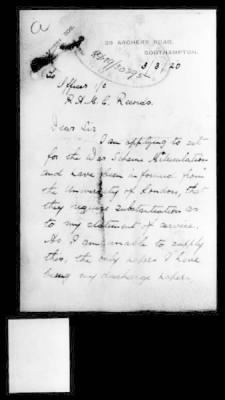 a
29 ARCHERS ROAD,
SOUTHAMPTON.
3/3/20
To Officer i/c
R.A.M.C. Records.
Dear Sir
I am applying to sit
for the War Scheme Matriculation
and have been informed from
the University of London, that
they require substantiation as
to my statement of service.
As I am unable to supply
this, the only papers I have
being my discharge papers,